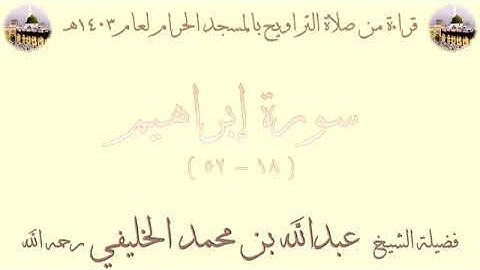 قراءة من صلاة التراويح بالمسجد الحرام لعام ١٤٠٣هـ
سورة إبراهيم
( ١٨ - ٥٢ )
فضيلة الشيخ عبدالله بن محمد الخليفي رحمه الله